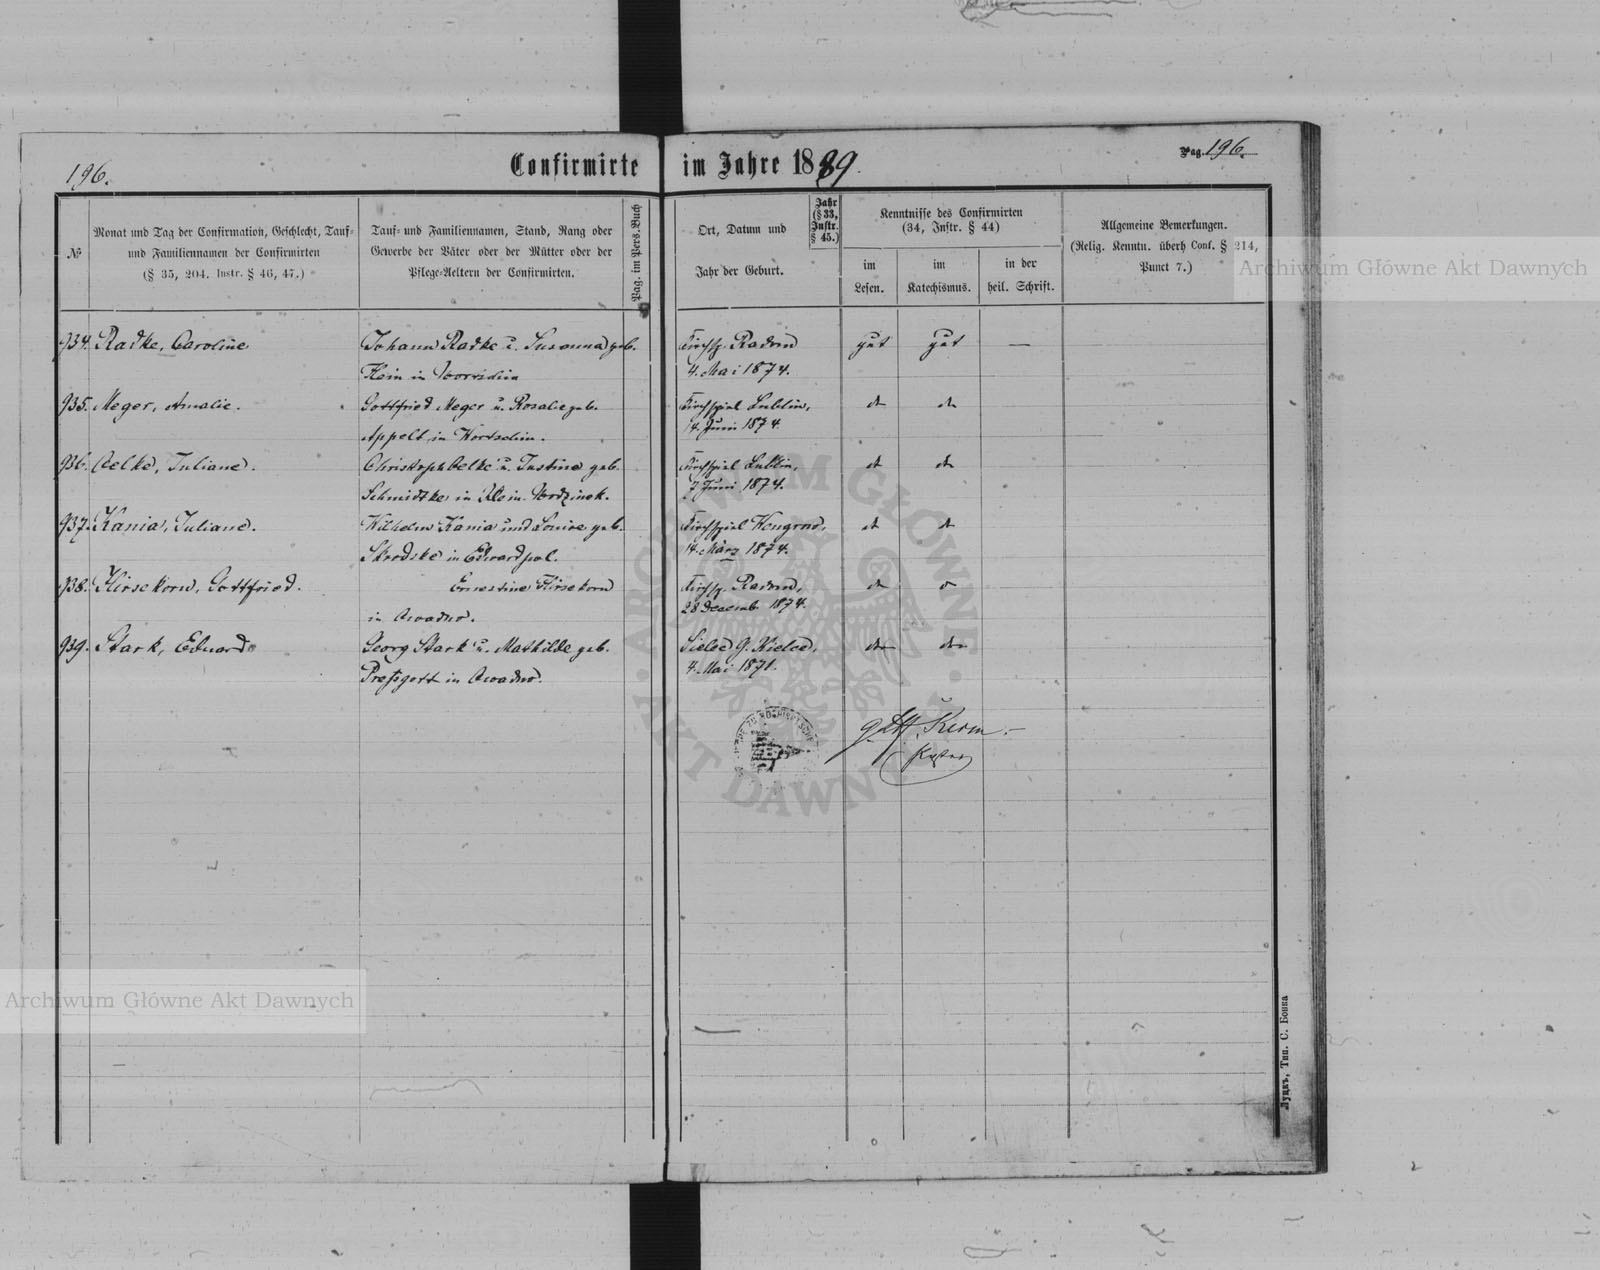 196.
Confirmirte im Jahre 1889.
Pag. 196.
№
Monat und Tag der Confirmation, Geschlecht, Tauf-
und Familiennamen der Confirmirten
(§ 35, 204. Instr. § 46, 47.)
Tauf- und Familiennamen, Stand, Rang oder
Gewerbe der Väter oder der Mütter oder der
Pflege-Aeltern der Confirmirten.
Pag. im Pers.Buch
Ort, Datum und
Jahr der Geburt.
Jahr
(§ 33,
Instr.
§ 45.)
Kenntnisse des Confirmirten
(34, Instr. § 44)
im
Lesen.
im
Katechismus.
in der
heil. Schrift.
Allgemeine Bemerkungen.
(Relig. Kenntn. überh Conf. § 214,
Punct 7.)
934. Radke, Caroline
Johann Radke u. Susanna geb.
Klein in
Kirchsp. Radom
4. Mai 1874.
gut gut —
935. Meger, Amalie.
Gottfried Meger u. Rosalie geb.
Appelt in
Kirchspiel Lublin,
14. Juni 1874.
do do
936. Oelke, Juliane.
Christoph Oelke u. Justine geb.
Schmidtke in Klein
Kirchspiel Lublin,
7 Juni 1874.
do do
937. Kania, Juliane.
Wilhelm Kania und Louise geb.
in Edwardpol.
Kirchspiel Wengrow,
14. März 1874.
do do
938. Hirsekorn, Gottfried.
Ernestine Hirsekorn
in
Kirchsp. Radom,
28 Decemb. 1874.
do do
939. Stark, Eduard
Georg Stark u. Mathilde geb.
in
Sielce G. Kielce,
4. Mai 1871.
do do
Archiwum Główne Akt Dawnych
ARCHIWUM GŁÓWNE · AKT DAWNYCH ·
Archiwum Główne Akt Dawnych
Луцкъ, Тип. С. Бонка